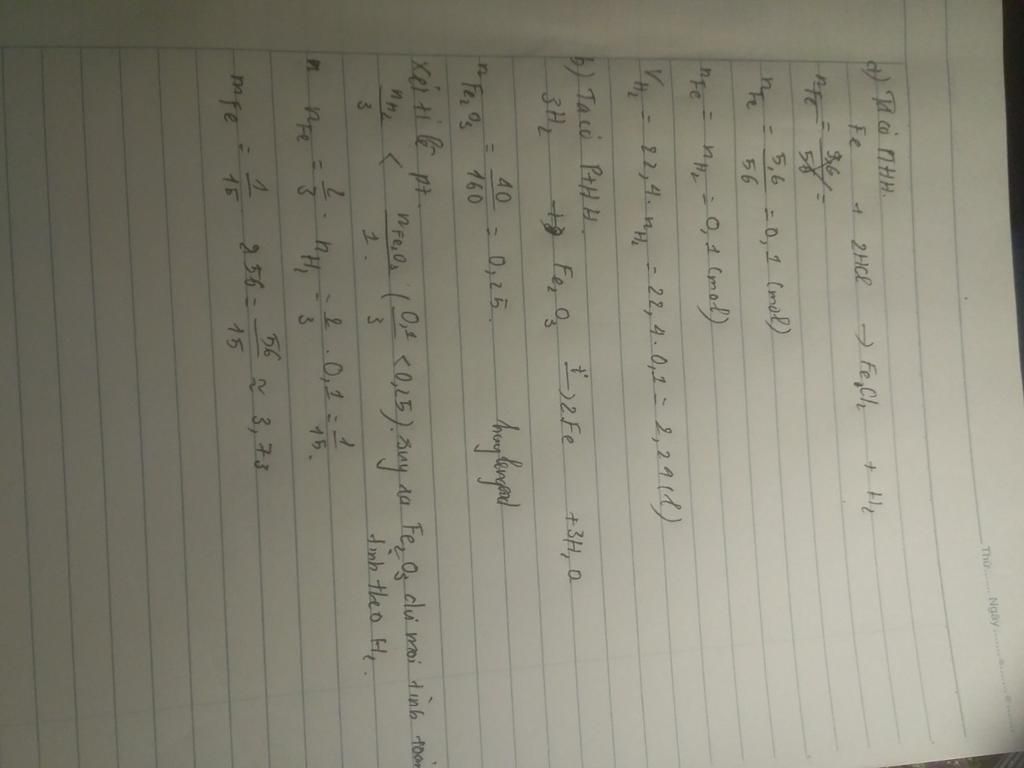 Thứ........ Ngày............
a) Ta có PTHH.
Fe + 2HCl → FeCl₂ + H₂
nFe = 3,6/56 =
nFe = 5,6/56 = 0,1 (mol)
nFe = nH₂ = 0,1 (mol)
VH₂ = 22,4 . nH₂ = 22,4 . 0,1 = 2,24 (l)
b) Ta có PTHH.
3H₂ + Fe₂O₃ t°→ 2Fe + 3H₂O
nFe₂O₃ = 40/160 = 0,25.
Xét tỉ lệ pt.
nH₂/3 < nFe₂O₃/1 (0,1/3 < 0,25) suy ra Fe₂O₃ dư mọi tính toán
tính theo H₂.
n nFe = 2/3 . nH₂ = 2/3 . 0,1 = 1/15.
mFe = 1/15 . 56 = 56/15 ≈ 3,73